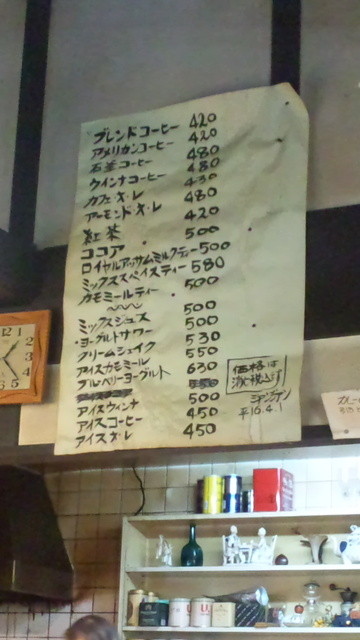 ブレンドコーヒー 420
アメリカンコーヒー 420
石釜コーヒー 480
ウインナコーヒー 480
カフェ・オ・レ 430
アーモンド・オ・レ 480
紅茶 420
ココア 500
ロイヤルアッサムミルクティー 500
ミックススパイスティー 580
カモミールティー 500
ミックスジュース 500
ヨーグルトサワー 500
クリームシェイク 530
アイスカモミール 550
ブルベリーヨーグルト 630
アイスウィンナ 500
アイスコーヒー 450
アイスオ・レ 450
価格は
消・税込です
平16.4.1
12
1
2
3
4
5